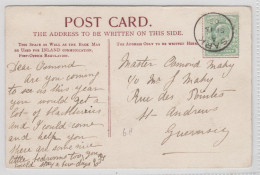 POST CARD.
THE ADDRESS TO BE WRITTEN ON THIS SIDE.
This Space as Well as the Back May
be Used for INLAND communication.
Post-Office Regulation.
The Address Only to be Written Here.
Dear Osmond
Are you coming
to see us this year
you would get a
lot of blackberries
and I could come
and help you
There are some nice
little bedrooms too, you
could stay a few days
Master Osmond Mahy
c/o Mr J Mahy
Rue des Pointes
St. Andrew
Guernsey